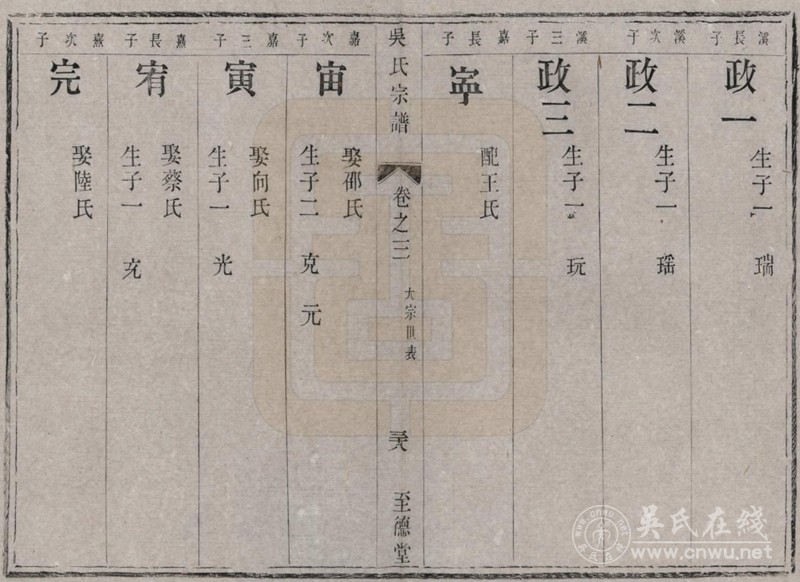 溪長子
政一
生子一 瑞
溪次子
政二
生子一 瑤
溪三子
政三
生子一 玩
嘉長子
寕
配王氏
吳氏宗譜
卷之三
大宗世表
至德堂
嘉次子
宙
娶邵氏
生子二 克 元
嘉三子
寅
娶向氏
生子一 光
熹長子
宥
娶蔡氏
生子一 充
熹次子
完
娶陸氏
吴氏在线
www.cnwu.net